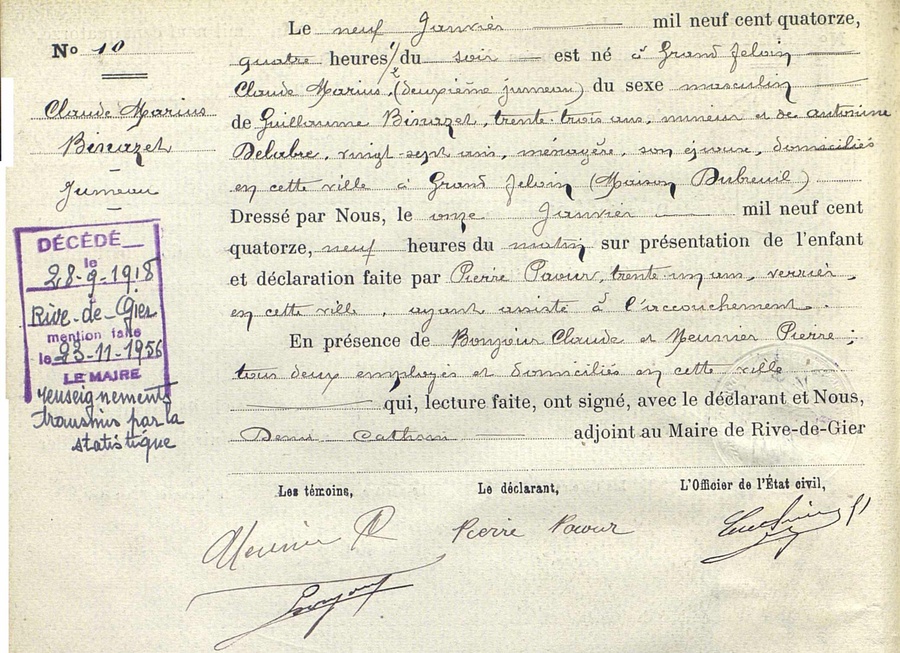 Nº 10
Claude Marius
Binazet
Jumeau
DÉCÉDÉ
le
28-9-1918
Rive-de-Gier
mention faite
le 23-11-1956
LE MAIRE
renseignements
transmis par la
statistique
Le neuf Janvier mil neuf cent quatorze,
quatre heures 1/2 du soir est né à Grand Jeloin
Claude Marius, (deuxième jumeau) du sexe masculin
de Guillaume Binazet, trente-trois ans, mineur et de Antoinine
Delabre, vingt-sept ans, ménagère, son épouse, domiciliés
en cette ville à Grand Jeloin (Maison Dubreuil)
Dressé par Nous, le onze Janvier mil neuf cent
quatorze, neuf heures du matin sur présentation de l'enfant
et déclaration faite par Pierre Paour, trente-un ans, verrier,
en cette ville, ayant assisté à l'accouchement.
En présence de Bonjour Claude et Meunier Pierre ;
tous deux employés et domiciliés en cette ville
qui, lecture faite, ont signé, avec le déclarant et Nous,
adjoint au Maire de Rive-de-Gier
Les témoins, Le déclarant, L'Officier de l'État civil,
Meunier P Pierre Paour